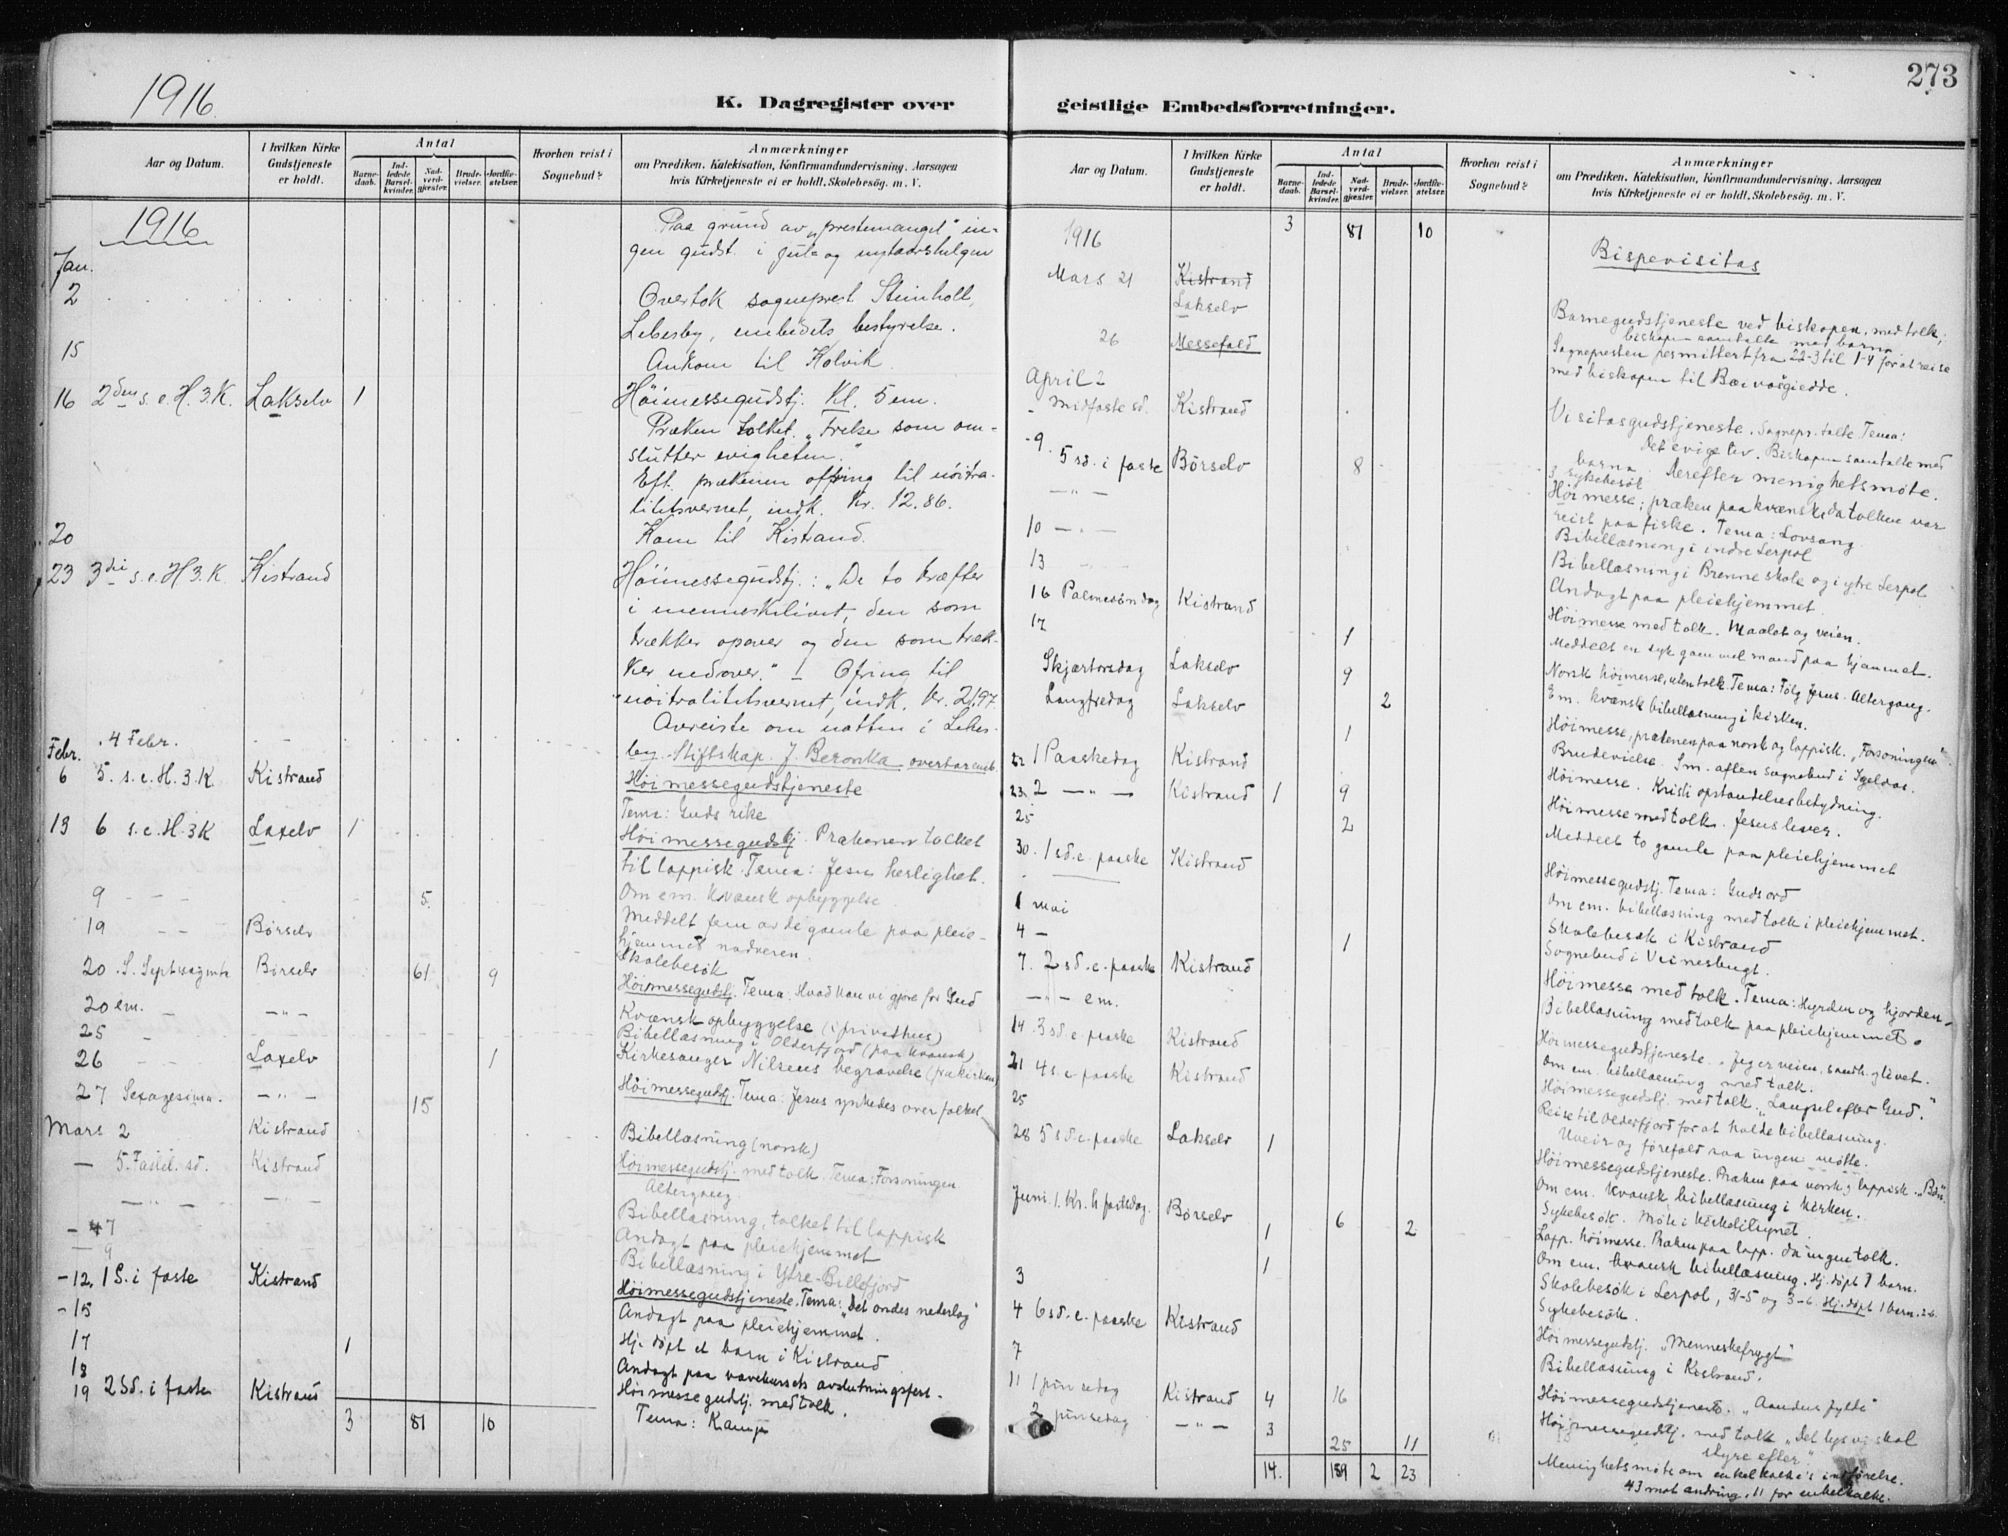 1916
K. Dagregister over
Aar og Datum.
I hvilken Kirke Gudstjeneste er holdt.
Antal
Barne-daab.
Ind-ledede Barsel-kvinder.
Nad-verd-gjæster.
Brude-vielser.
Jordfæ-stelser.
Hvorhen reist i Sognebud?
Anmærkninger
om Prædiken. Katekisation, Konfirmandundervisning. Aarsagen
hvis Kirketjeneste ei er holdt. Skolebesøg. m. V.
1916
Paa grund av „prestemangel" in-
gen gudst. i jule og nytaarshelgen
Jan.
2 Overtok sogneprest Steinholt,
Lebesby, embedets bestyrelse.
15 Ankom til Kolvik.
16 2den s. e. H. 3. K. Lakselv 1 Höimessegudstj. Kl. 5 em.
Præken tolket. „Frelse som om-
slutter evigheten."
Eft. prækenen ofring til nöitra-
litetsvernet, indk. Kr. 12.86.
20 Kom til Kistrand.
23 3die s. e. H. 3. K. Kistrand Höimessegudstj.: „De to kræfter
i menneskelivet, den som
trækker opover og den som træk-
ker nedover." – Ofring til
nöitralitetsvernet, indk. Kr. 21.97.
Avreiste om natten i Lebes-
4 Febr. by. Stiftskap. J. Beronka overtar emb.
Febr. 6 5. s. e. H. 3. K Kistrand Höimessegudstjeneste
Tema: Guds rike
13 6 s. e. H. 3K Laxelv 1 Höimessegudstj. Prækenen tolket
til lappisk. Tema: Jesu herlighet.
Om em. kvænsk opbyggelse
9 5 Meddelt fem av de gamle paa pleie-
hjemmet nadveren.
19 Børselv Skolebesøk
20 S. Septuagesima Børselv 61 9 Höimessegudstj. Tema: Hvad kan vi gjøre for Gud
20 em. – „ – Kvænsk opbyggelse (i privathus)
25 Bibellæsning i Olderfjord (paa kvænsk)
26 Laxelv 1 Kirkesanger Nilsens begravelse (fra kirken)
27 Sexagesima. – „ – 15 Höimessegudstj. Tema: Jesus ynkedes over folket
Mars 2 Kistrand Bibellæsning (norsk)
– 5. Fastel. sd. Kistrand Höimessegudstj. med tolk. Tema: Forsoningen
Altergang.
– „ – – „ – Bibellæsning, tolket til lappisk
– 7 Andagt paa pleiehjemmet
– 9 Bibellæsning i Ytre-Billefjord
– 12. 1 S. i faste Kistrand Höimessegudstjeneste. Tema: „Det ondes nederlag"
– 15 Andagt paa pleiehjemmet.
17 1 Hj. døpt et barn i Kistrand
18 Andagt paa vævekursets avslutningsfest.
19 2 Sd. i faste Kistrand Höimessegudstj. med tolk.
Tema: Kamp
3 81 10
273
geistlige Embedsforretninger.
Aar og Datum.
I hvilken Kirke Gudstjeneste er holdt.
Antal
Barne-daab.
Ind-ledede Barsel-kvinder.
Nad-verd-gjæster.
Brude-vielser.
Jordfæ-stelser.
Hvorhen reist i Sognebud?
Anmærkninger
om Prædiken. Katekisation, Konfirmandundervisning. Aarsagen
hvis Kirketjeneste ei er holdt. Skolebesög. m. V.
1916 3 81 10
Bispevisitas
Mars 21 Kistrand
Lakselv Barnegudstjeneste ved biskopen, med tolk;
biskopen samtalte med barna.
26 Messefald Sognepresten permittert fra 22-3 til 1-4 for at reise
med biskopen til Bævašgiedde.
April 2
Midfaste sd. Kistrand Visitasgudstjeneste. Sognepr. talte. Tema:
Det evige liv. Biskopen samtalte med
barna. Derefter menighetsmöte.
3 sykebesök
- 9. 5 sd. i faste Börselv 8 Höimesse; præken paa kvænsk, da tolken var
reist paa fiske. Tema: Lovsang.
– „ – Bibellæsning i indre Lerpol
10 – „ – Bibellæsning i Brenne skole og i ytre Lerpol
13 Andagt paa pleiehjemmet.
16 Palmesöndag Kistrand Höimesse med tolk. Maalet og veien.
17 1 Meddelt en syk gammel mand paa hjemmet.
Skjærtorsdag Lakselv 9 Norsk höimesse, uten tolk. Tema: Fölg Jesus. Altergang.
Em. kvænsk bibellæsning i kirken.
Langfredag Lakselv 2 Höimesse, prækenen paa norsk og lappisk. „Forsoningen"
1 Brudevielse. Sm. aften sognebud i Igeldas.
22 1 Paaskedag Kistrand Höimesse. Kristi opstandelses betydning.
23. 2 – „ – Kistrand 1 9 Höimesse med tolk. Jesus lever.
25 2 Meddelt to gamle paa pleiehjemmet
30. 1 sd. e. paaske Kistrand Höimessegudstj. Tema: Guds ord
Om em. bibellæsning med tolk i pleiehjemmet.
1 mai Skolebesøk i Kistrand
4 – 1 Sognebud i Veinesbugt.
7. 2 sd. e. paaske Kistrand Höimesse med tolk. Tema: Hyrden og hjorden.
– „ – em. Bibellæsning med tolk paa pleiehjemmet.
14 3 sd e paaske Kistrand Höimessegudstjeneste. „Jeg er veien, sandh. og livet.
Om em. bibellæsning med tolk.
21 4 s. e paaske Kistrand Höimessegudstj. med tolk „Længsel efter Gud."
25 Reise til Olderfjord for at holde bibellæsning.
Uveir og förefald saa ingen mötte.
28 5 sd. e. paaske Lakselv 1 Höimessegudstjeneste. Præken paa norsk og lappisk. „Bøn".
Om em. kvænsk bibellæsning i kirken.
Sykebesök. Möte i kirketilsynet.
Juni 1. Kr. h fartsdag. Børselv 1 6 2 Lapp. höimesse. Præken paa lapp. da ingen tolk.
1 Om em. kvænsk bibellæsning. Hj. döpt 1 barn.
3 Skolebesök i Lerpol, 31-5 og 3-6. Hj. döpt 1 barn. 2-6
Sykebesök.
4 6 sd. e. paaske Kistrand Höimessegudstj. „Menneskefrygt"
7 Bibellæsning i Kistrand.
11 1 pinsedag Kistrand 4 16 Höimessegudstjeneste. „Aandens fylde"
2 pinsedag – „ – 3 Höimessegudstj. med tolk „Det lys vi skal
styre efter".
25 11 Menighetsmöte om enkelkalke's indførelse.
14. 159 2 23 43 mot ændring, 11 for enkelkalke.